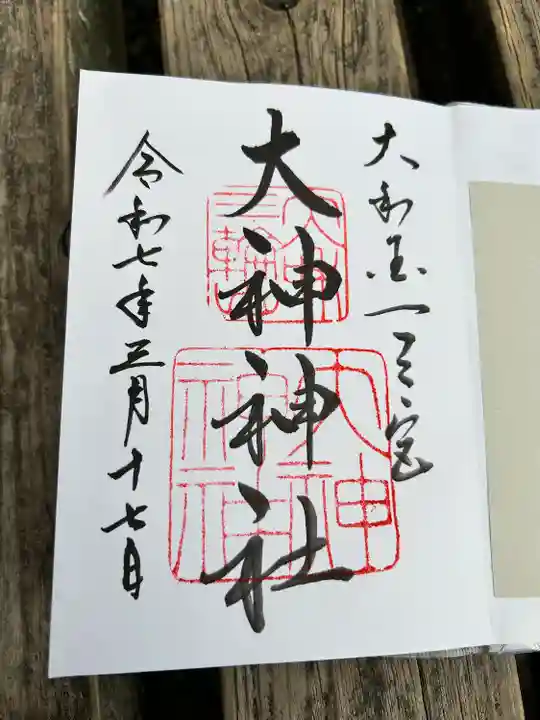 大和国一之宮
大神神社
令和七年三月十七日
大神
神社